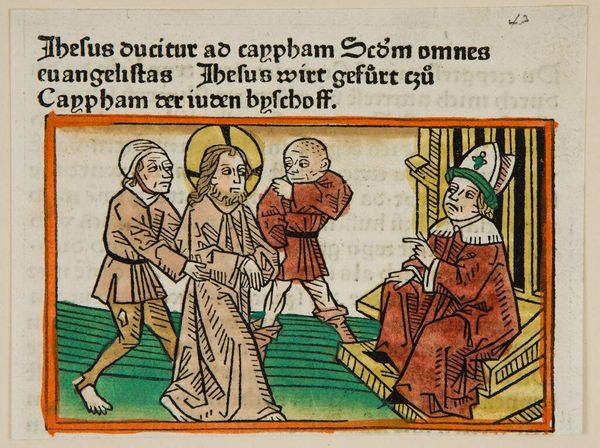 Ihesus ducitur ad caypham Scd̄m omnes
euangelistas Ihesus wirt gefůrt czů
Caypham der iuden byschoff.